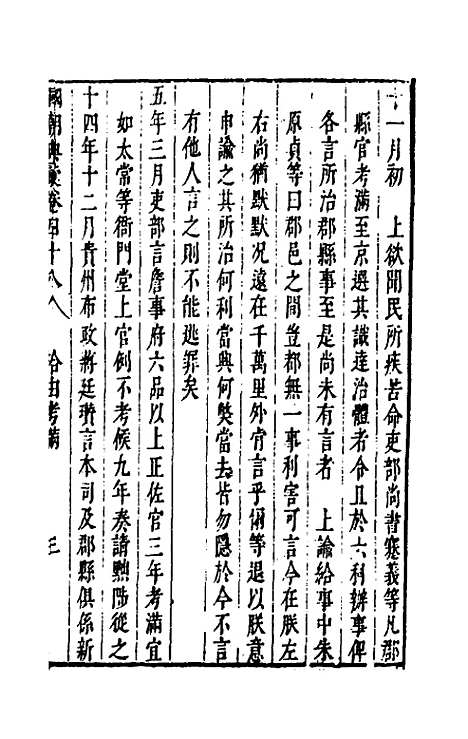 十一月初　上欲聞民所疾苦命吏部尚書蹇義等凡郡
縣官考滿至京選其識達治體者令且於六科辦事俾
各言所治郡縣事至是尚未有言者　上諭給事中朱
原貞等曰郡邑之間豈都無一事利害可言今在朕左
右尚猶默默况遠在千萬里外肯言乎俑等退以朕意
申諭之其所治何利當興何獘當去皆勿隱於今不言
有他人言之則不能逃罪矣
五年三月吏部言詹事府六品以上正佐官三年考滿宜
如太常等衙門堂上官例不考候九年奏請黜陟從之
十四年十二月貴州布政蔣廷瓚言本司及郡縣俱係新
國朝典彙卷四十八　給由考滿　三